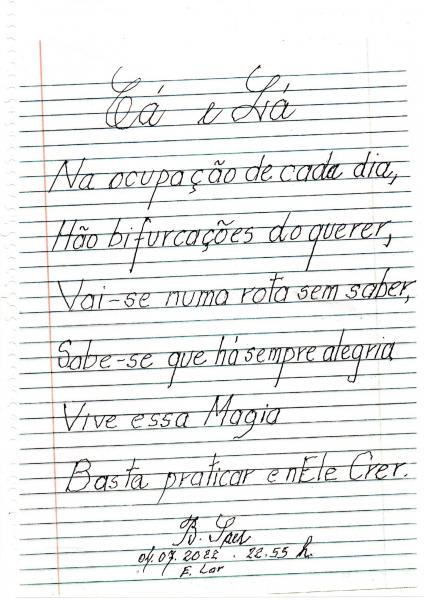 Cá e Lá
Na ocupação de cada dia,
Hão bifurcações do querer,
Vai-se numa rota sem saber,
Sabe-se que há sempre alegria
Vive essa Magia
Basta praticar e nEle Crer.
B.
07.2022 . 22.55 h.
E. Lar